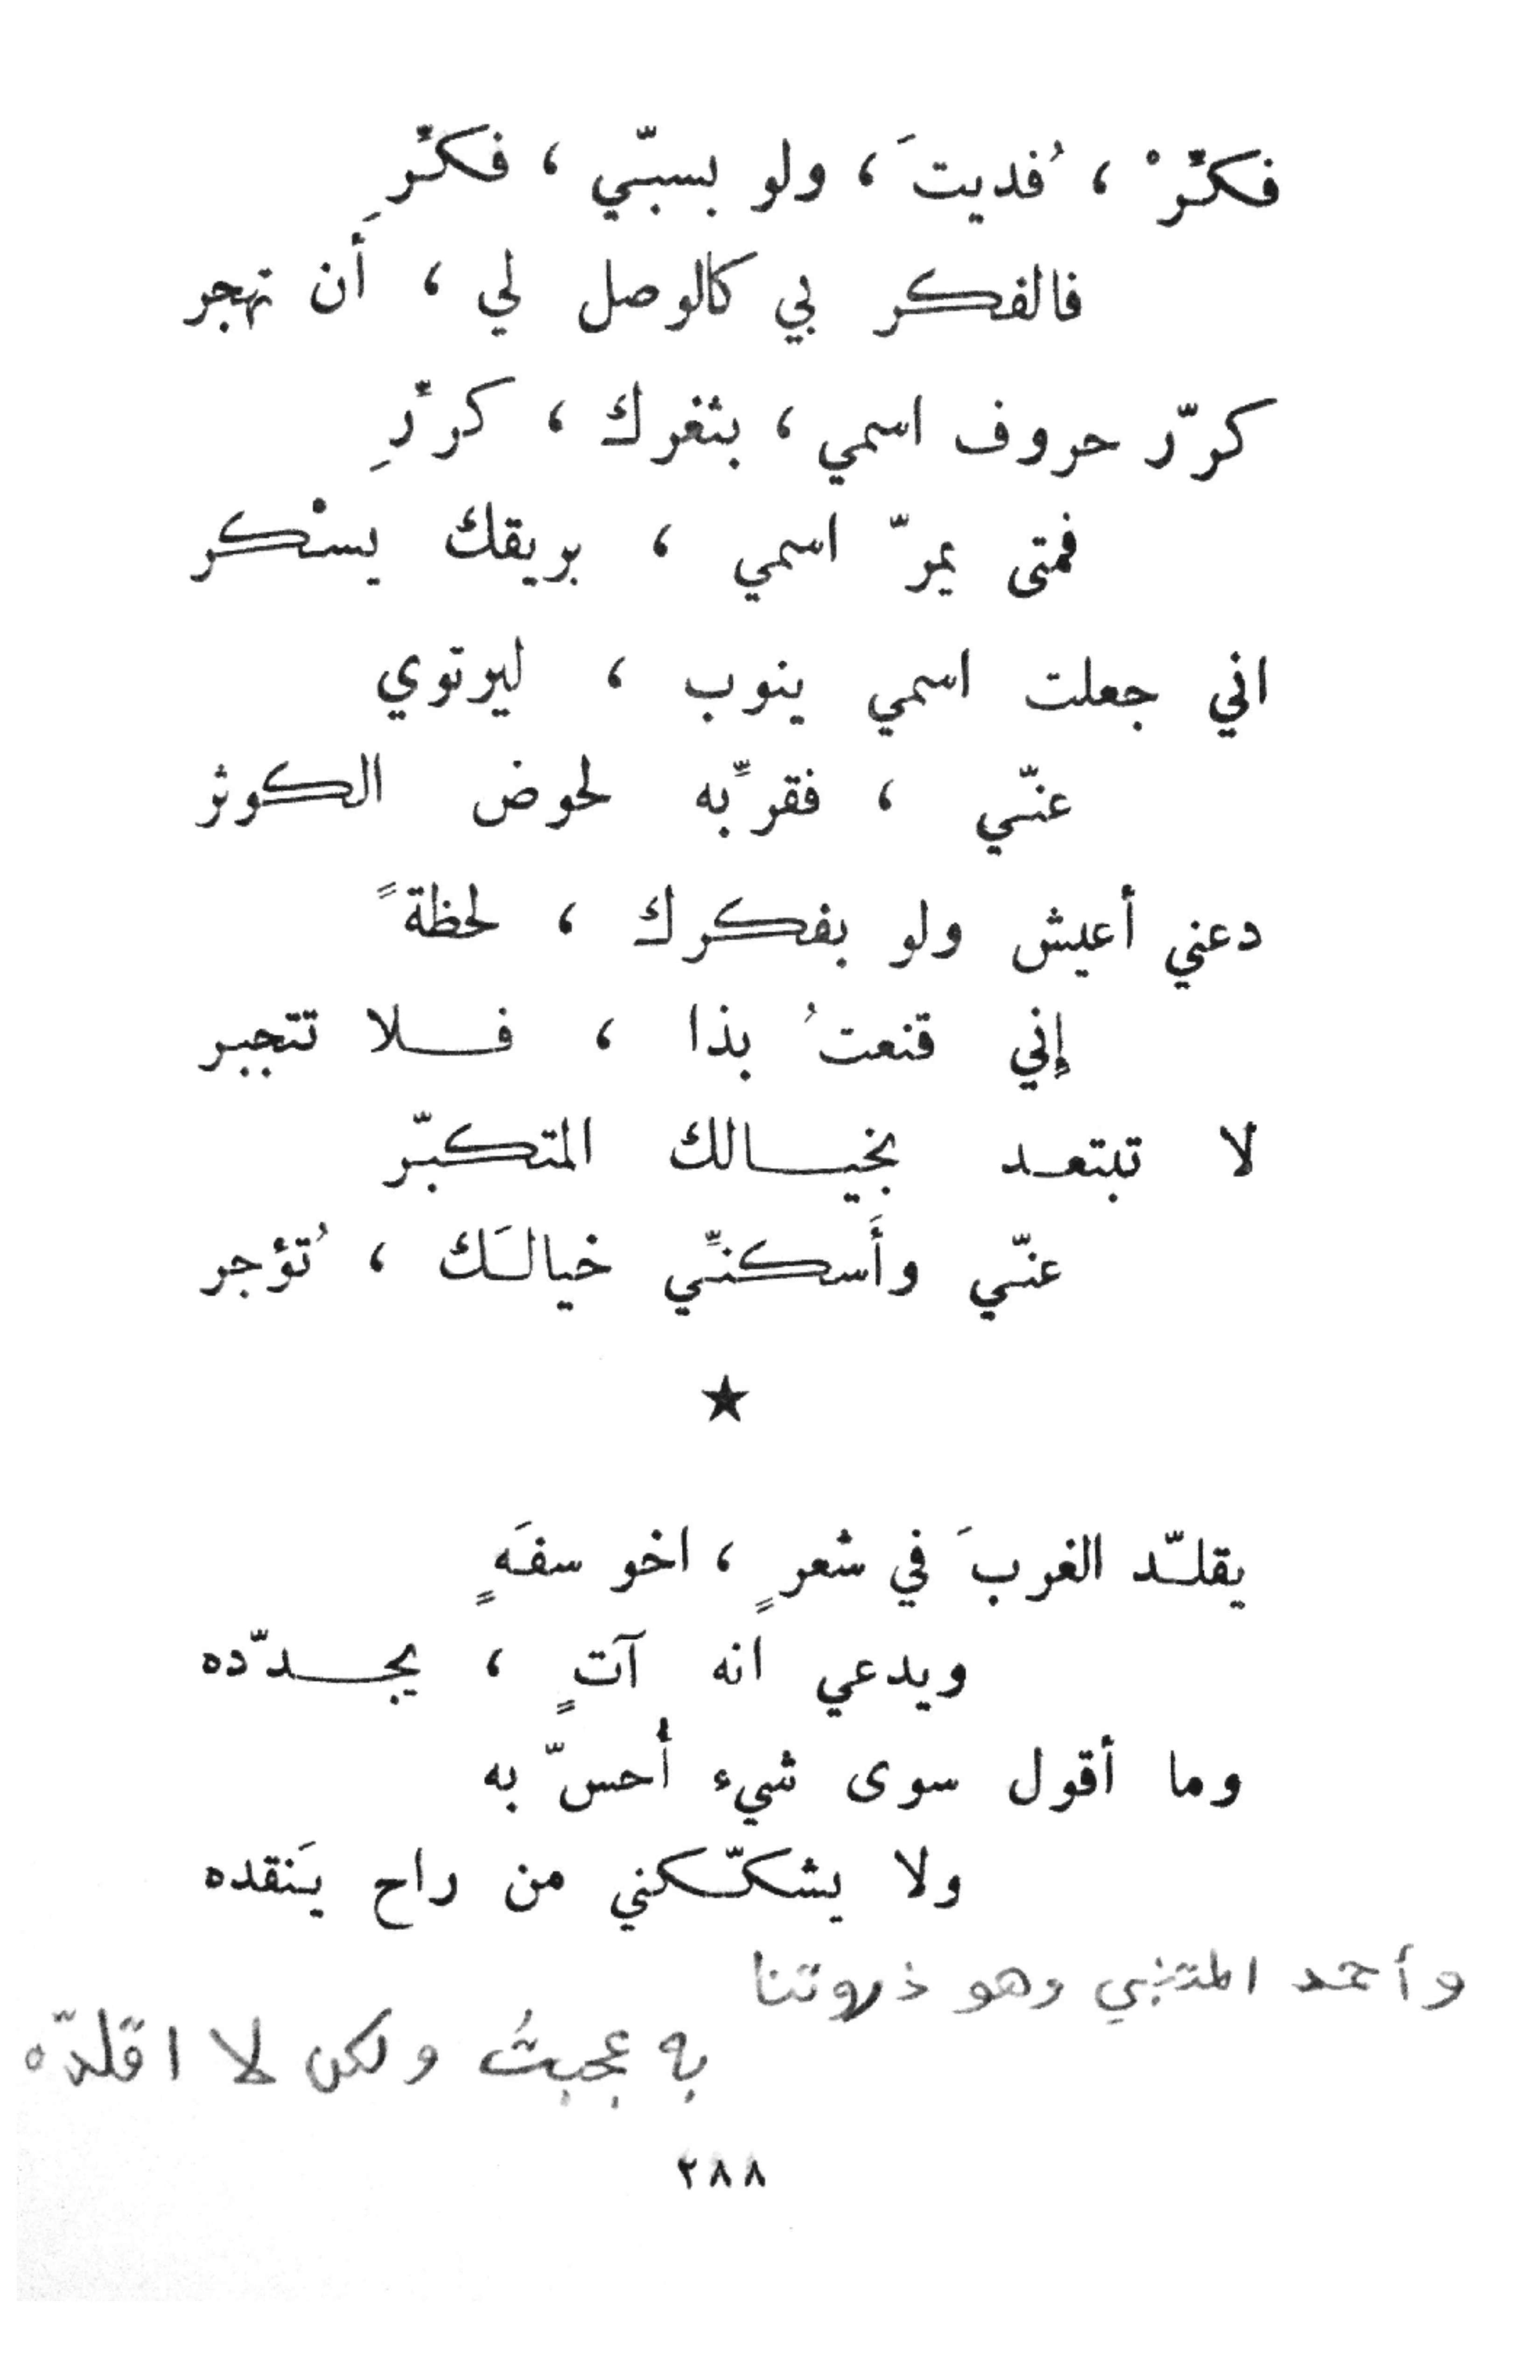 فكِّرْ ، فُديتَ ، ولو بسبّي ، فكِّرِ
فالفكر بي كالوصل لي ، أَن تهجر
كرّر حروف اسمي ، بثغرك ، كرِّرِ
فمتى يمرّ اسمي ، بريقك يسْكر
اني جعلت اسمي ينوب ، ليرتوي
عنّي ، فقرِّبه لحوض الكوثر
دعني أعيش ولو بفكرك ، لحظةً
إني قنعتُ بذا ، فـلا تتجبر
لا تبتعـد بخيـالك المتكبّر
عنّي وأَسكنِّي خيالـَك ، تُؤجر
★
يقلـّد الغربَ في شعرٍ ، اخو سفَهٍ
ويدعي انه آتٍ ، يجـدّده
وما أقول سوى شيء أحسّ به
ولا يشكـّكني من راح يَنقده
وأحمد المتنبي وهو ذروتنا
به عجبتُ ولكن لا اقلدّه
٢٨٨